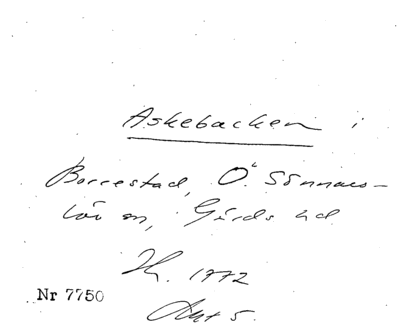 Askebacken i
Borrestad, Ö. Sönnars-
löv sn, Gärds hd
1772
Nr 7750
Akt 5.